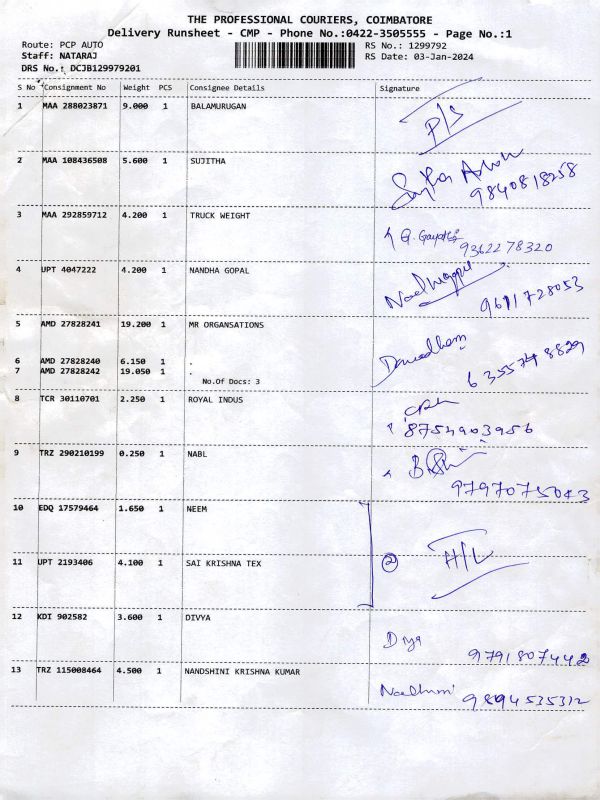 THE PROFESSIONAL COURIERS, COIMBATORE
Delivery Runsheet - CMP - Phone No.:0422-3505555 - Page No.:1
Route: PCP AUTO RS No.: 1299792
Staff: NATARAJ RS Date: 03-Jan-2024
DRS No.: DCJB129979201
S No Consignment No Weight PCS Consignee Details Signature
1 MAA 288023871 9.000 1 BALAMURUGAN
P/S
2 MAA 108436508 5.600 1 SUJITHA
9840818258
3 MAA 292859712 4.200 1 TRUCK WEIGHT
G. Gayathri
9362278320
4 UPT 4047222 4.200 1 NANDHA GOPAL
9611728053
5 AMD 27828241 19.200 1 MR ORGANSATIONS
6 AMD 27828240 6.150 1 .
7 AMD 27828242 19.050 1 .
No.Of Docs: 3
6355748829
8 TCR 30110701 2.250 1 ROYAL INDUS
8754903956
9 TRZ 290210199 0.250 1 NABL
9797075043
10 EDQ 17579464 1.650 1 NEEM
11 UPT 2193406 4.100 1 SAI KRISHNA TEX
② H/L
12 KDI 902582 3.600 1 DIVYA
Divya
9791807442
13 TRZ 115008464 4.500 1 NANDSHINI KRISHNA KUMAR
9894535312